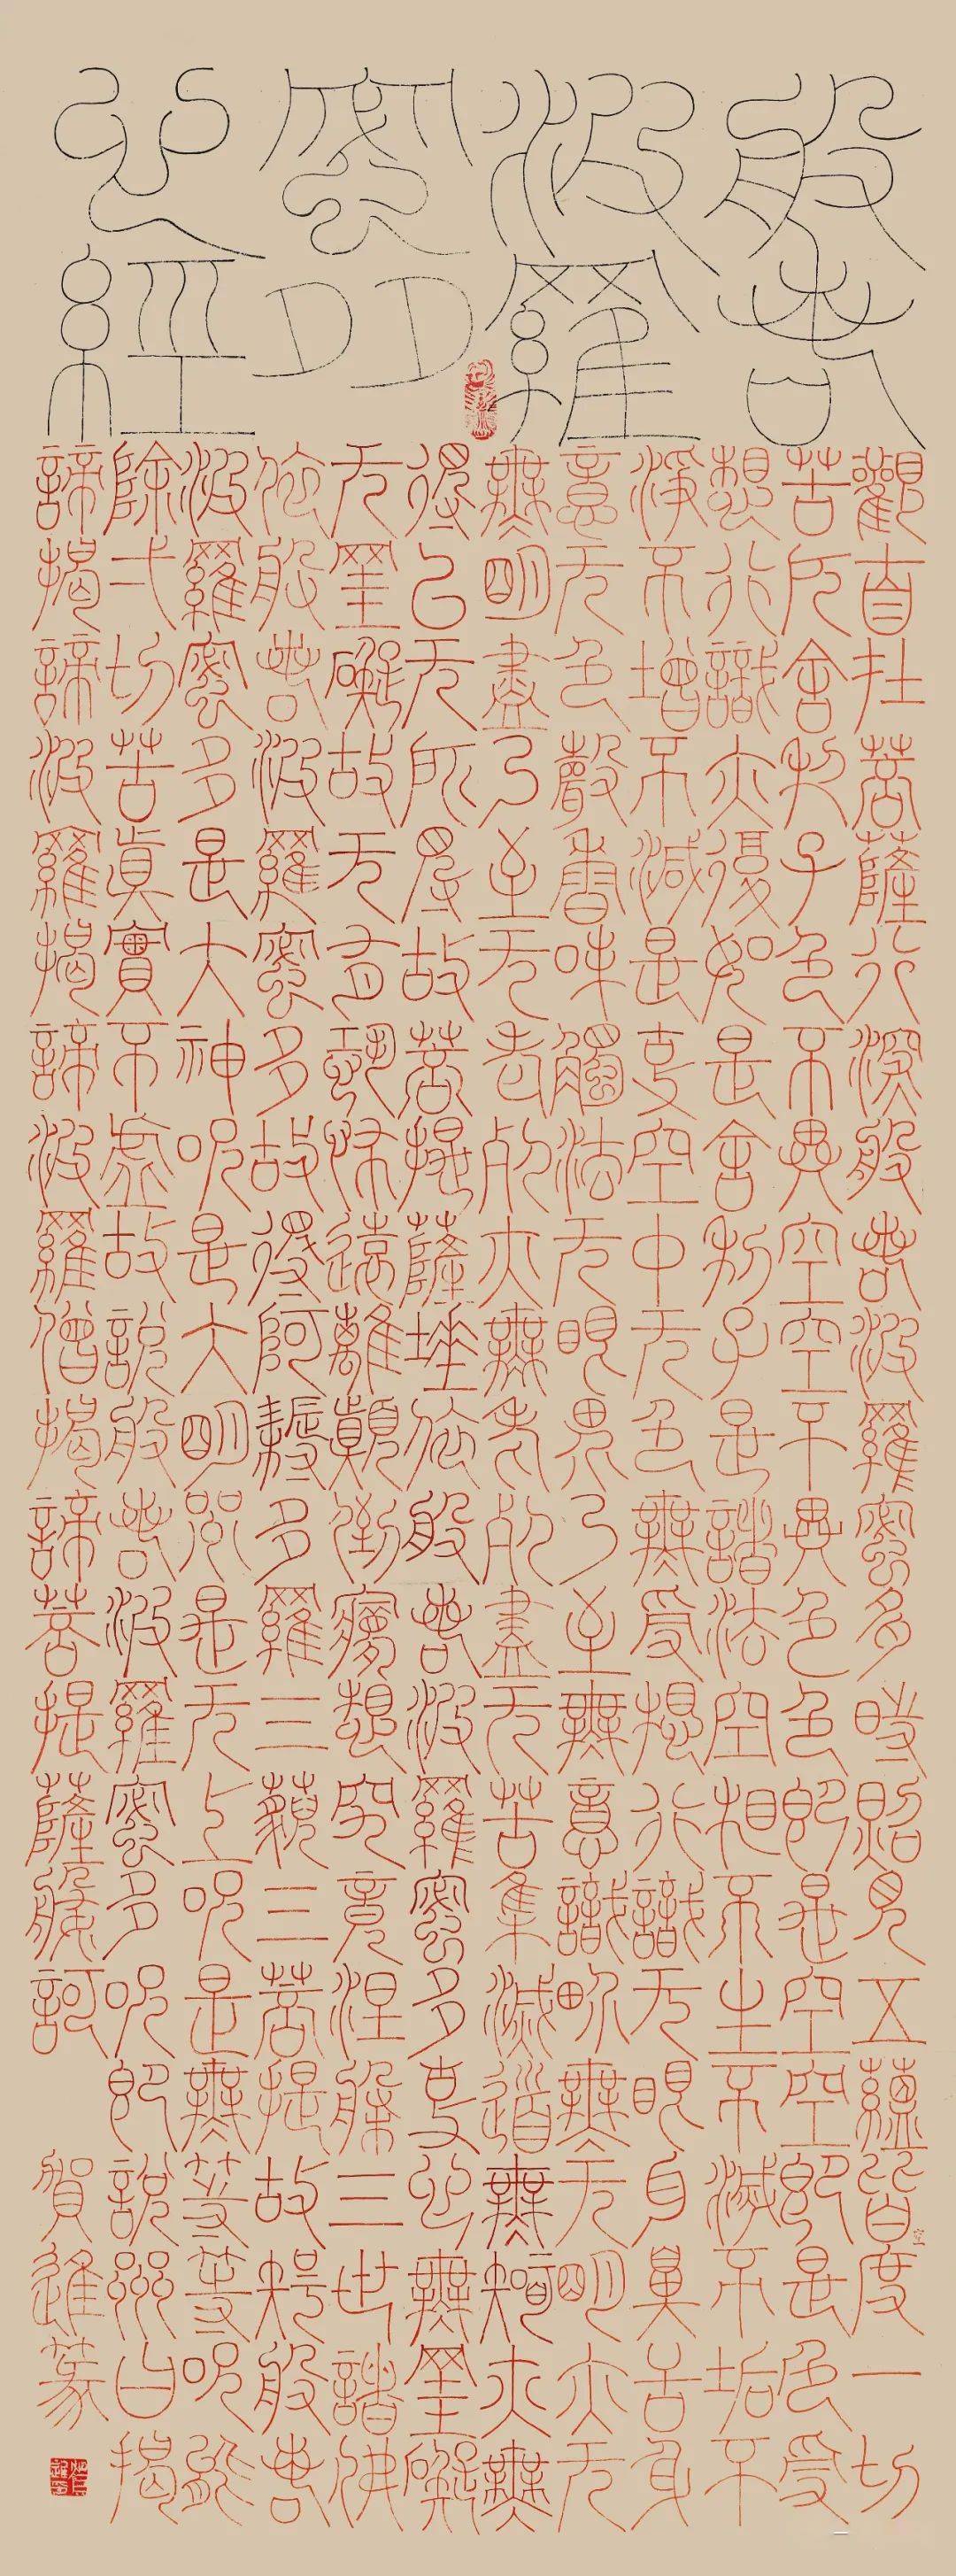 般若
波羅
蜜多
心經
觀自在菩薩行深般若波羅蜜多時照見五蘊皆空度一切
苦厄舍利子色不異空空不異色色即是空空即是色受
想行識亦復如是舍利子是諸法空相不生不滅不垢不
淨不增不減是故空中无色無受想行識无眼耳鼻舌身
意无色聲香味觸法无眼界乃至無意識界無无明亦无
無明盡乃至无老死亦無老死盡无苦集滅道無智亦無
得以无所得故菩提薩埵依般若波羅蜜多故心無罣礙
无罣礙故无有恐怖遠離顛倒夢想究竟涅槃三世諸佛
依般若波羅蜜多故得阿耨多羅三藐三菩提故知般若
波羅蜜多是大神咒是大明咒是无上咒是無等等咒能
除一切苦眞實不虛故說般若波羅蜜多咒即說咒曰揭
諦揭諦波羅揭諦波羅僧揭諦菩提薩婆訶
賀進篆